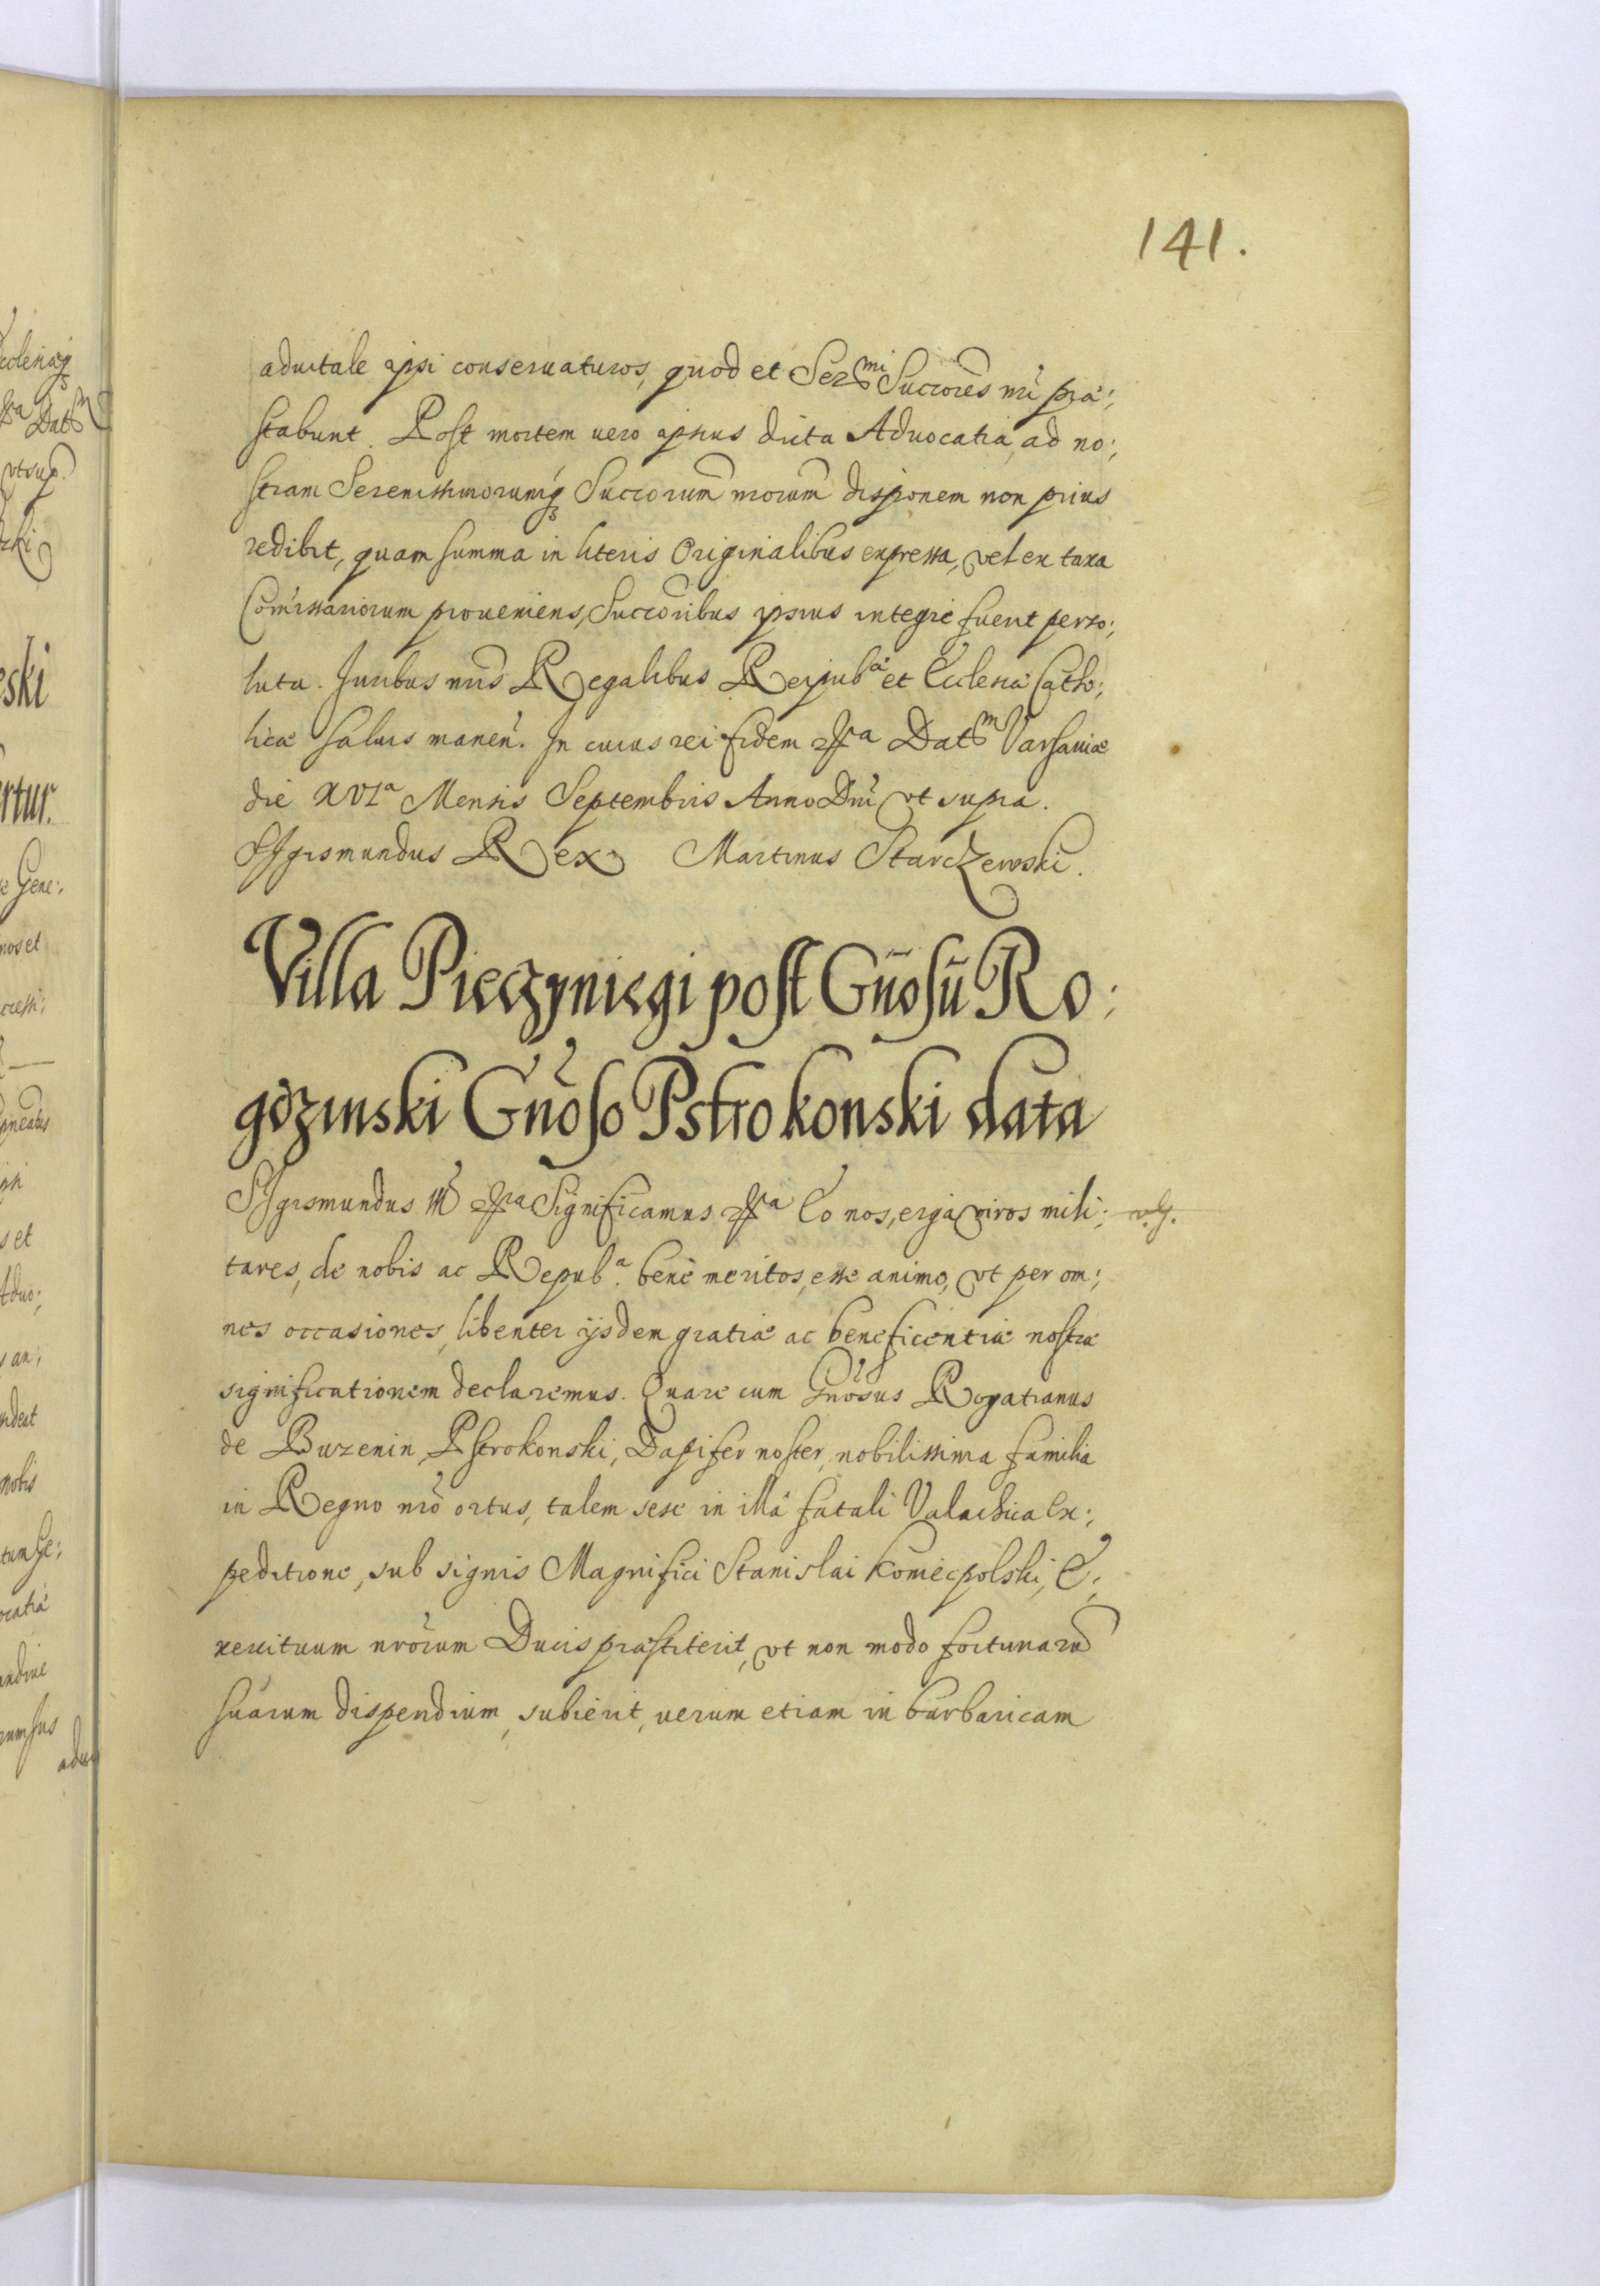 141.
aduitale ipsi conseruaturos, quod et Ser^mi Succores nri præ:,
stabunt. Post mortem uero ipsius dicta Aduocatia, ad no:,
stram Serenissimorumq Succorum nrorum disponem non prius
redibit, quam summa in literis Originalibus expressa, vel ex taxa
Comissariorum proueniens, Succoribus ipsius integre fuerit perso:,
luta. Juribus nris Regalibus Reipub^æ et Ecclesiæ Catho:,
licæ saluis manen. In cuius rei fidem &^a Dat^m Varsauiæ
die XVI^a Mensis Septembris Anno Dni vt supra.
Sigismundus Rex Martinus Starczewski.
Villa Pieczyniegi post Gnosu Ro:
gozinski Gnoso Pstrokonski data
Sigismundus III &^a Significamus &^a Eo nos, erga viros mili:,
tares, de nobis ac Repub^a. bene meritos, esse animo, vt per om:,
nes occasiones, libenter ijsdem gratiæ ac beneficentiæ nostræ
significationem declaremus. Quare cum Gnosus Rogatianus
de Buzenin Pstrokonski, Dapifer noster, nobilissima familia
in Regno nro ortus, talem sese in illa fatali Valachica Ex:,
peditione, sub signis Magnifici Stanislai Koniecpolski, E:,
xercituum nrorum Ducis præstiterit, vt non modo fortunaru
suarum dispendium, subierit, uerum etiam in barbaricam